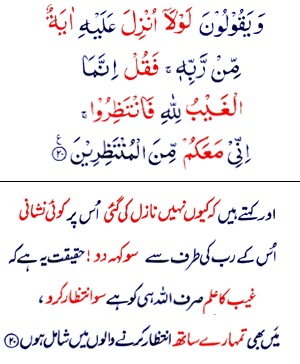 وَيَقُوْلُوْنَ لَوْلَاۤ اُنْزِلَ عَلَيْهِ اٰيَةٌ
مِّنْ رَّبِّهٖ ۚ فَقُلْ اِنَّمَا
الْغَيْبُ لِلّٰهِ فَانْتَظِرُوْا ۚ
اِنِّىْ مَعَكُمْ مِّنَ الْمُنْتَظِرِيْنَ ﴿۲۰﴾ ع
اور کہتے ہیں کہ کیوں نہیں نازل کی گئی اُس پر کوئی نشانی
اُس کے رب کی طرف سے سو کہہ دو! حقیقت یہ ہے کہ
غیب کا علم صرف اللہ ہی کو ہے سو انتظار کرو،
میں بھی تمہارے ساتھ انتظار کرنے والوں میں شامل ہوں ﴿۲۰﴾